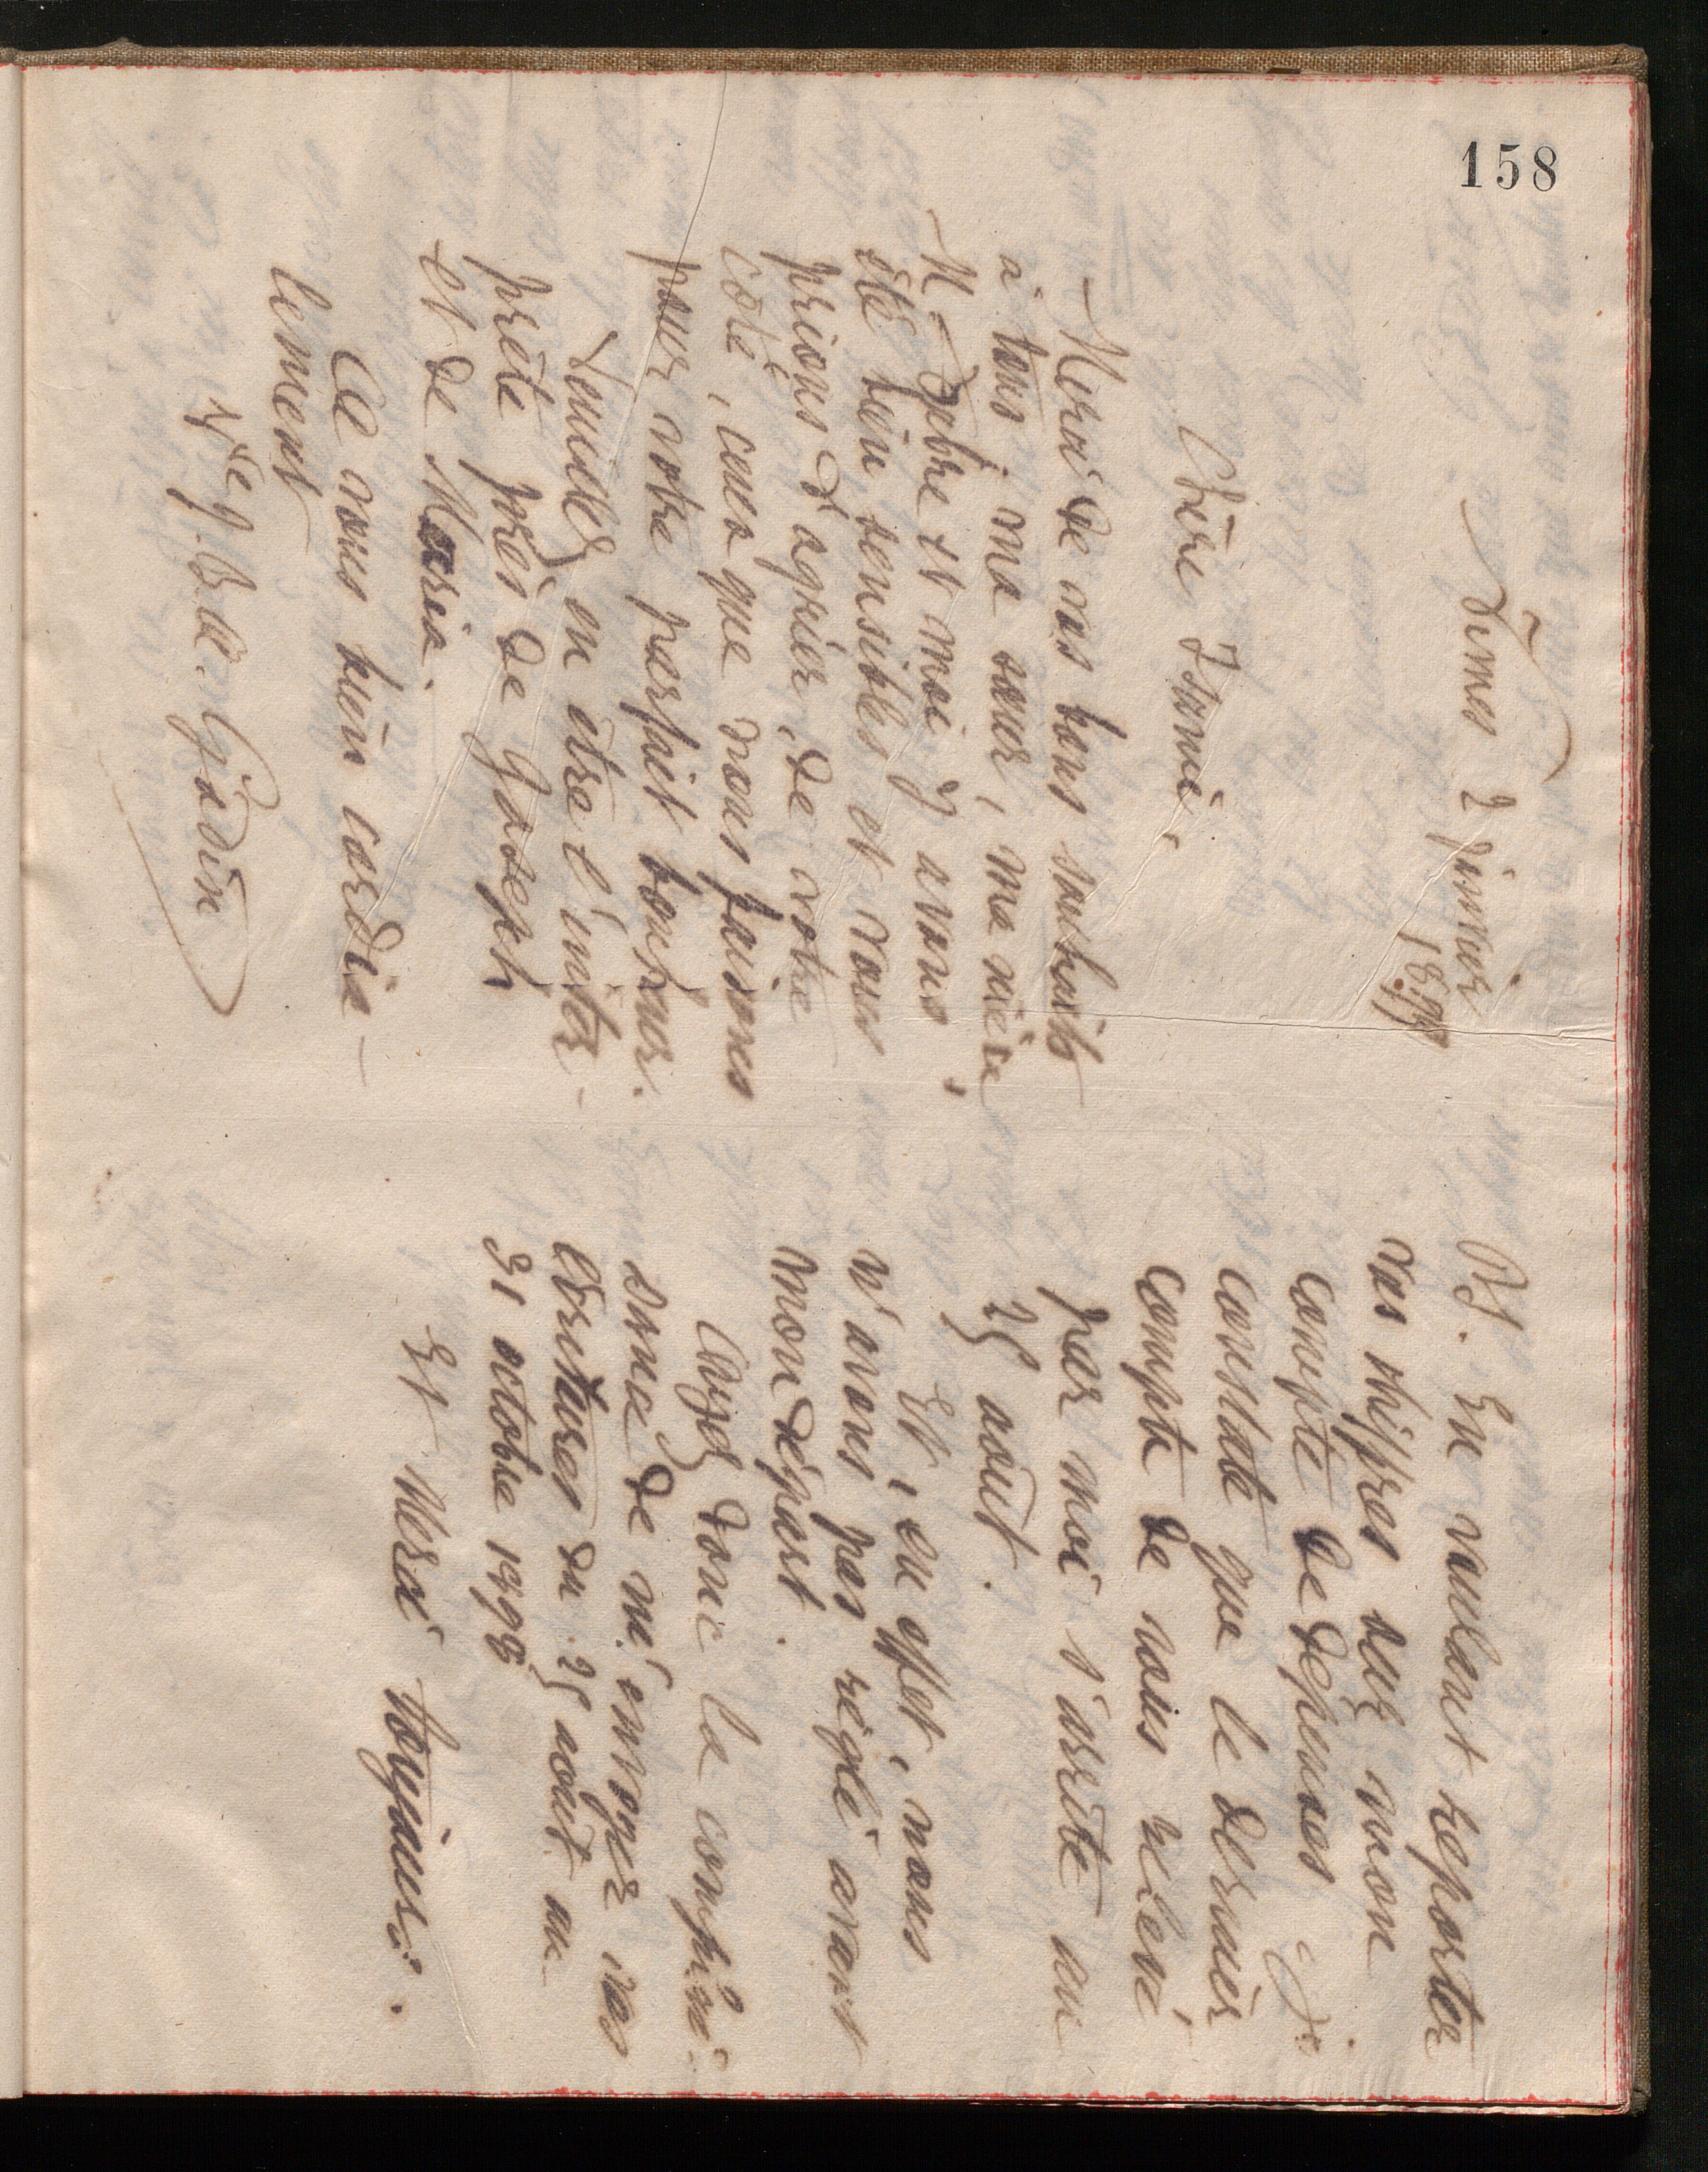 158
Nimes 2 janvier
1899
Chère Fanny,
Merci de vos bons souhaits
à tous ; ma sœur, ma nièce
M. Fabre et moi y avons
été bien sensibles et vous
prions d'agréer, de votre
côté, ceux que nous faisons
pour votre parfait bonheur.
Veuillez en être l'inter-
prète près de Joseph
et de Maria.
A vous bien cordia-
lement
Vve J. B. A. Godin
P.S. En voulant reporter
vos chiffres sur mon
compte de dépenses je
constate que le dernier
compte de vous relevé
par moi s'arrête au
25 août.
Et, en effet, nous
n'avons pas réglé avant
mon départ.
Ayez donc la complai-
sance de m'envoyer vos
écritures du 25 août au
31 octobre 1898
Et Merci toujours.